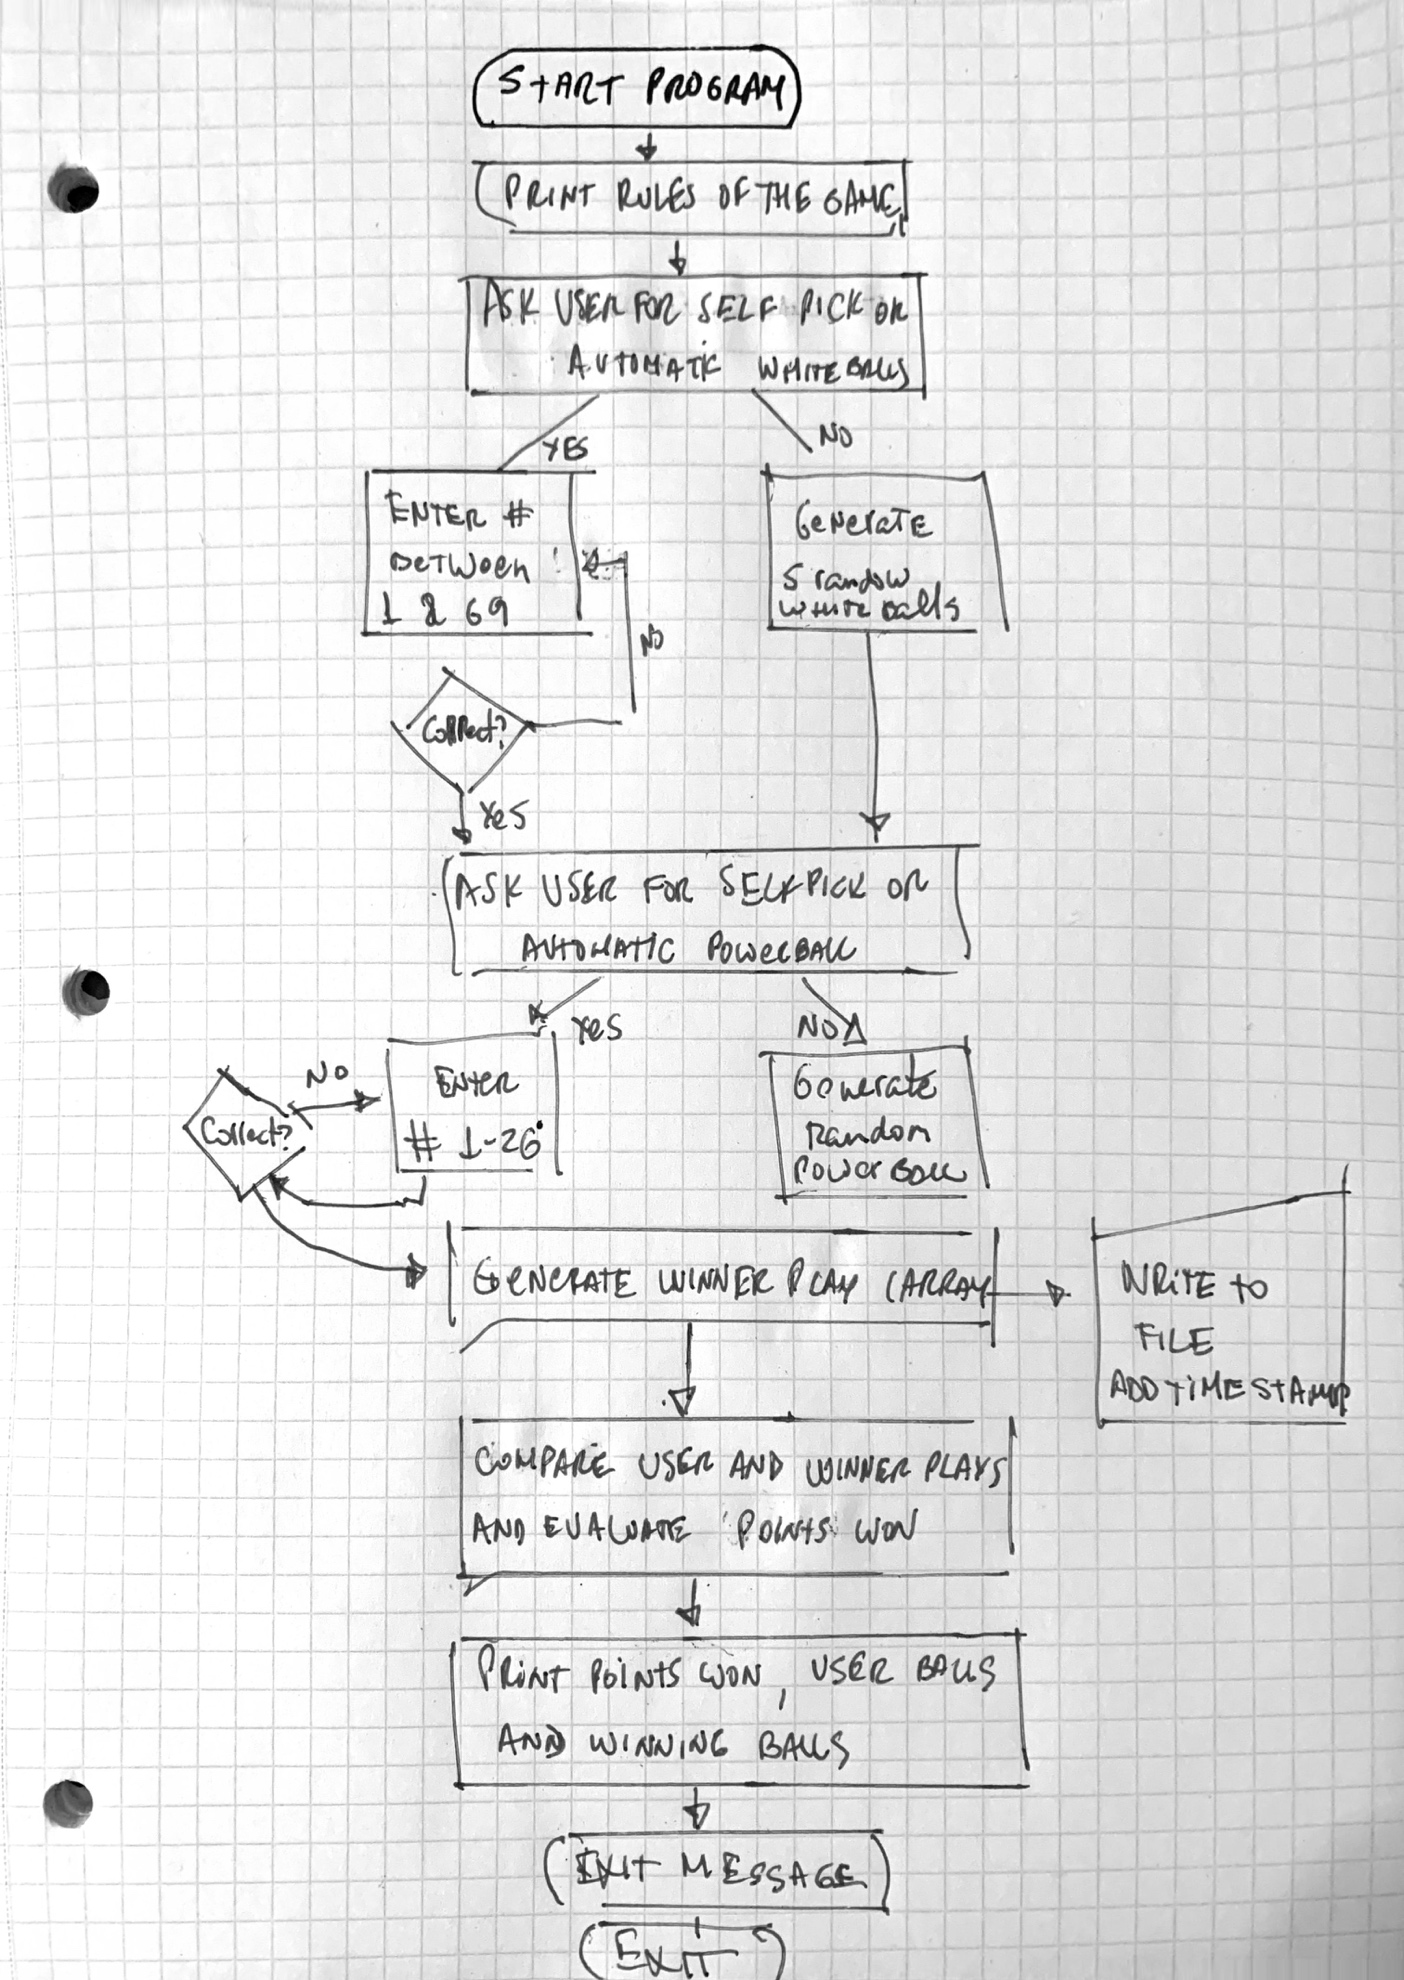 START PROGRAM
PRINT RULES OF THE GAME
ASK USER FOR SELF PICK OR
AUTOMATIC WHITE BALLS
YES
NO
ENTER #
BETWEEN
1 & 69
Generate
5 random
White Balls
NO
Correct?
Yes
ASK USER FOR SELF PICK OR
AUTOMATIC POWERBALL
Yes
NO
NO
Correct?
Enter
# 1-26
Generate
Random
Power Ball
GENERATE WINNER PLAY (ARRAY
WRITE TO
FILE
ADD TIMESTAMP
COMPARE USER AND WINNER PLAYS
AND EVALUATE POINTS WON
PRINT POINTS WON, USER BALLS
AND WINNING BALLS
EXIT MESSAGE
EXIT